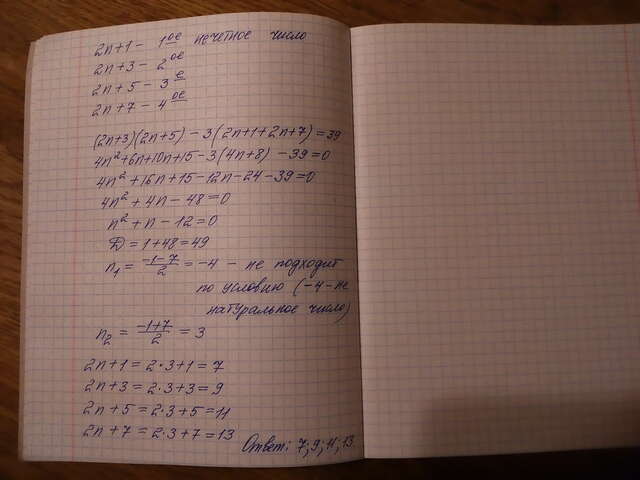 2n+1 - 1ое нечетное число
2n+3 - 2ое
2n+5 - 3е
2n+7 - 4ое
(2n+3)(2n+5) - 3(2n+1+2n+7)=39
4n²+6n+10n+15-3(4n+8) -39=0
4n²+16n+15-12n-24-39=0
4n²+4n-48=0
n²+n-12=0
D=1+48=49
n₁= -1-7/2 =-4 - не подходит
по условию (-4-не
натуральное число)
n₂ = -1+7/2 = 3
2n+1=2·3+1=7
2n+3=2·3+3=9
2n+5=2·3+5=11
2n+7=2·3+7=13
Ответ: 7;9;11;13